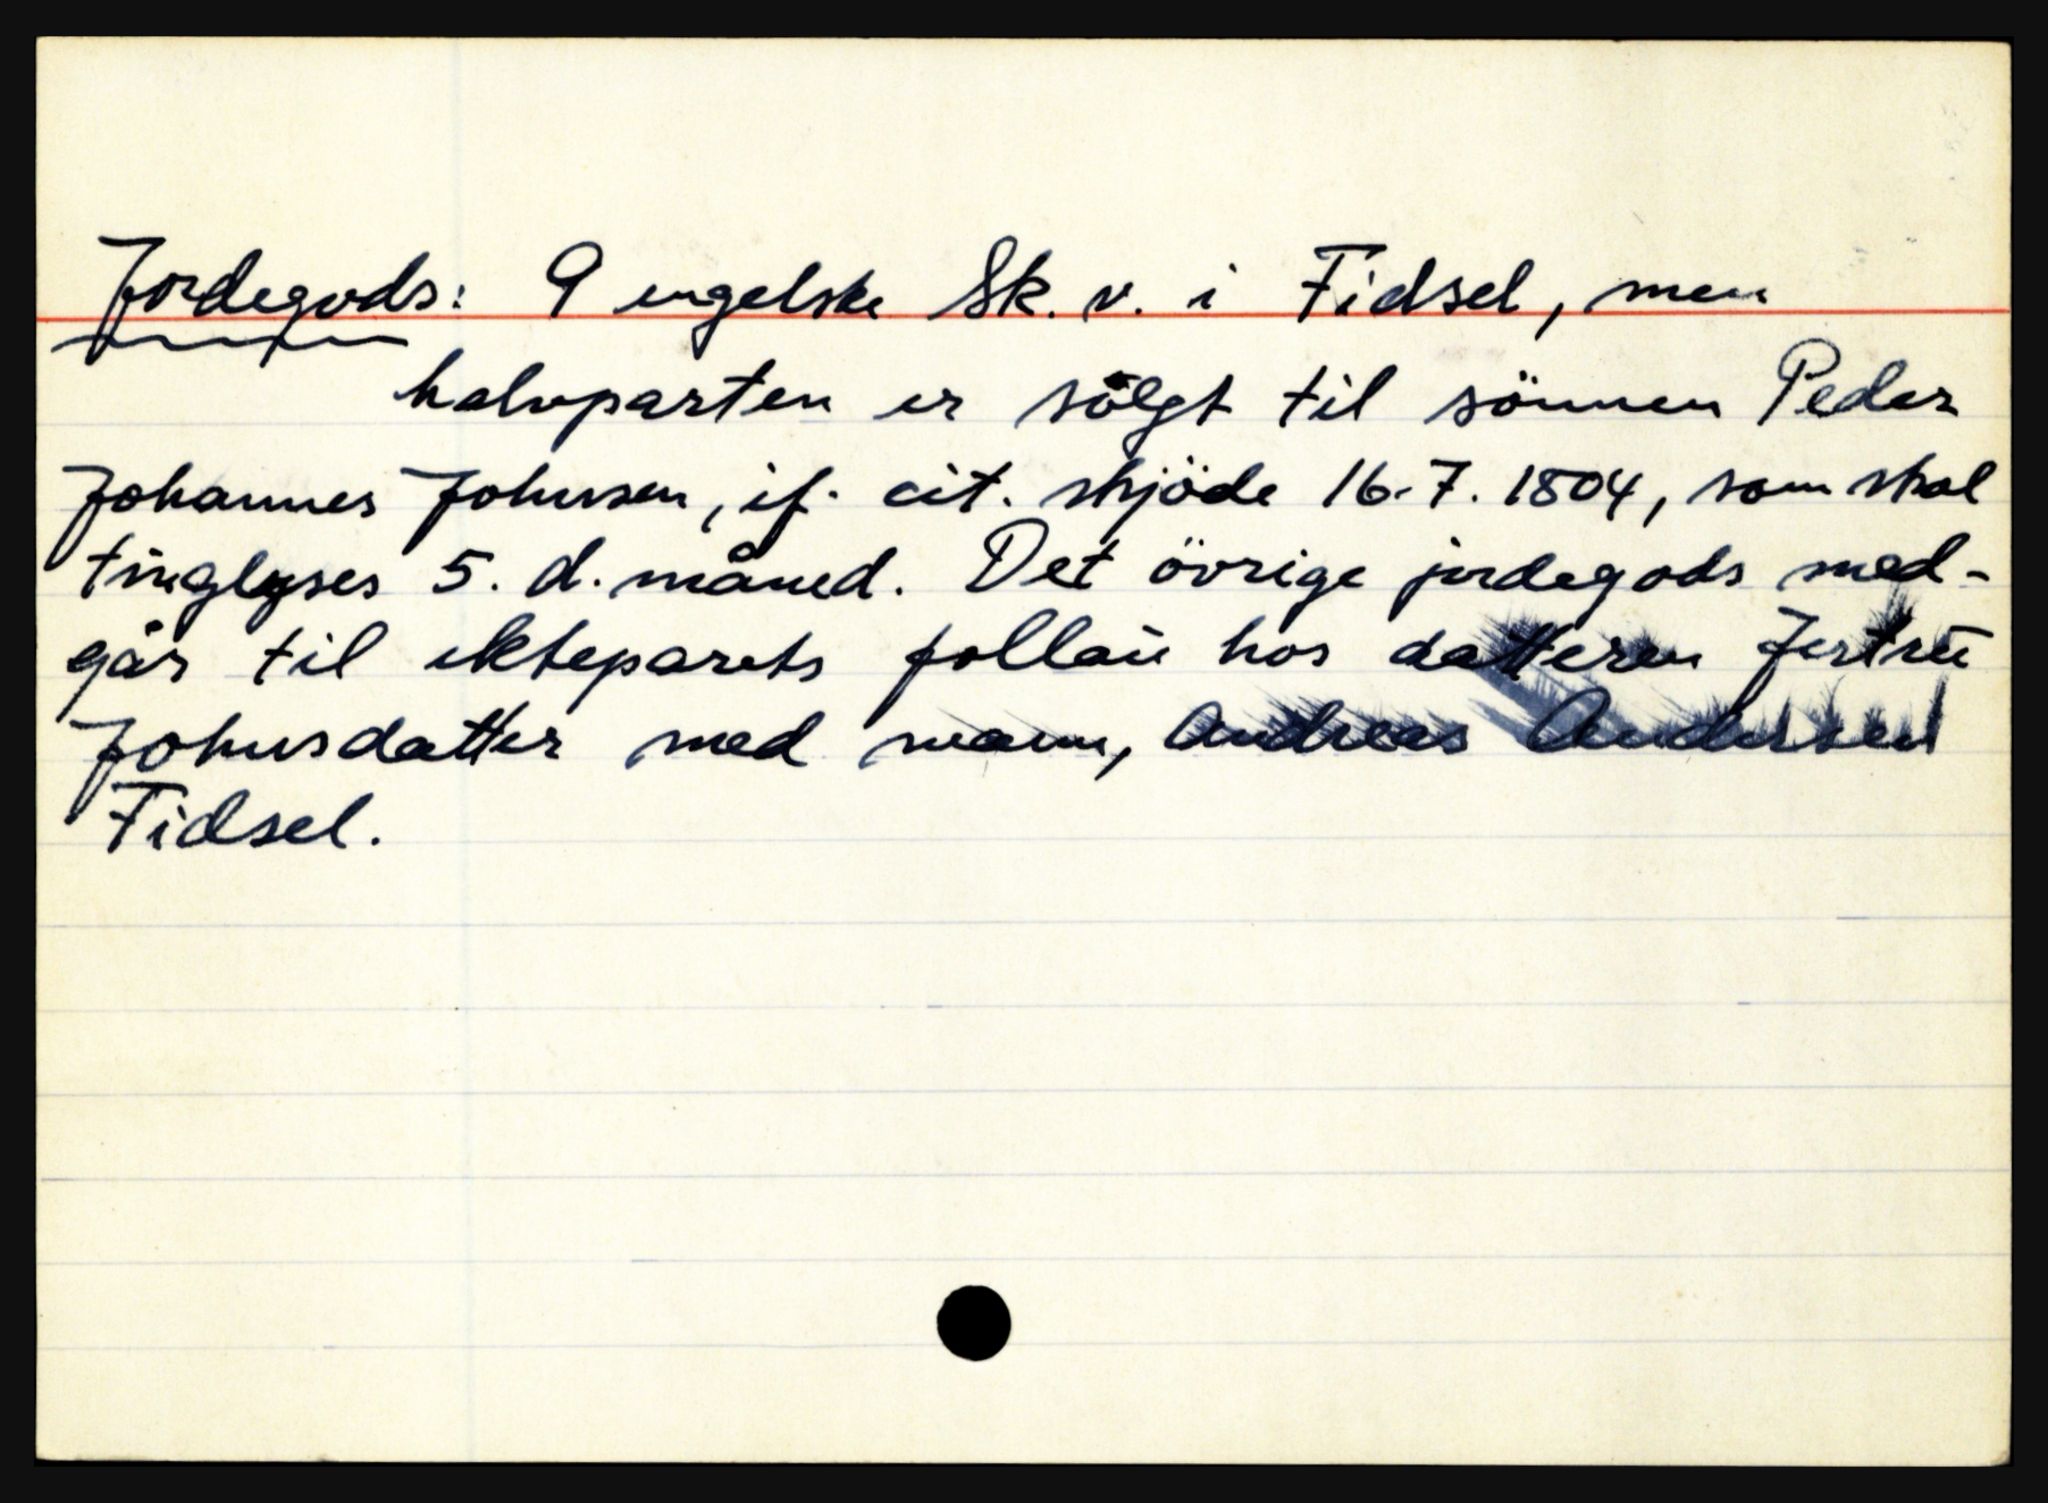 Jordegods: 9 engelske Sk. v. i Fidsel, men
halvparten er sölgt til sönnen Peder
Johannes Johnsen, if. cit. skjöde 16.7. 1804, som skal
tinglyses 5. d. måned. Det övrige jordegods med-
går til ekteparets follaŭ hos datteren Jertrŭ
Johnsdatter med mann, Andreas Andersen
Fidsel.